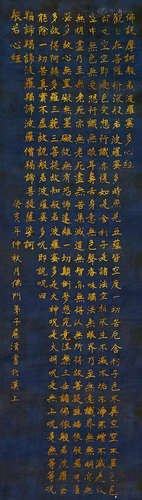 佛說摩訶般若波羅蜜多心經
觀自在菩薩行深般若波羅蜜多時照見五蘊皆空度一切苦厄舍利子色不異空空不異色色
即是空空即是色受想行識亦復如是舍利子是諸法空相不生不滅不垢不淨不增不減是故
空中無色無受想行識無眼耳鼻舌身意無色聲香味觸法無眼界乃至無意識界無無明亦
無無明盡乃至無老死亦無老死盡無苦集滅道無智亦無得以無所得故菩提薩埵依般若波羅
蜜多故心無罣礙無罣礙故無有恐怖遠離一切顛倒夢想究竟涅槃三世諸佛依般若波羅蜜
多故得阿耨多羅三藐三菩提故知般若波羅蜜多是大神咒是大明咒是無上咒是無等等咒
能除一切苦真實不虛故說般若波羅蜜多咒即說咒曰
揭諦揭諦波羅揭諦波羅僧揭諦菩提薩婆訶
般若心經 癸亥年仲秋月佛門弟子羅書於上